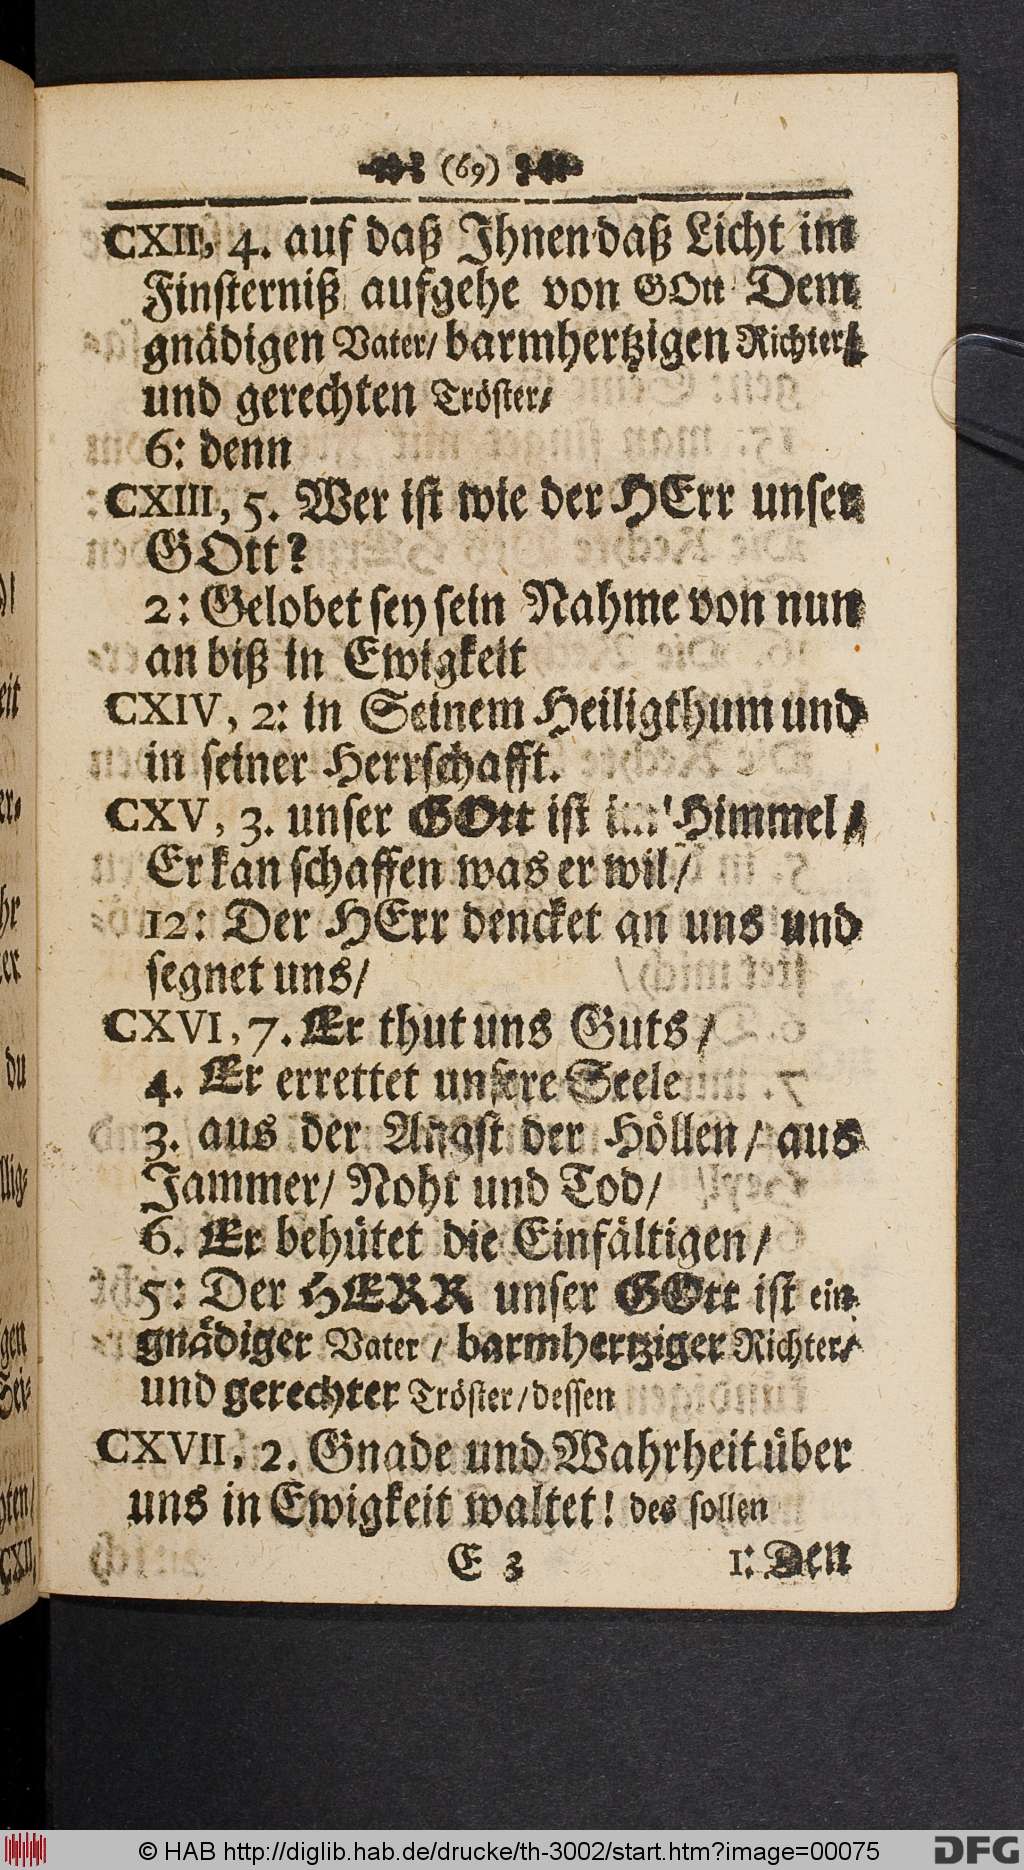 (69)
CXII, 4. auf daß Ihnen daß Licht im
Finsterniß aufgehe von GOtt Dem
gnädigen Vater/ barmhertzigen Richter/
und gerechten Tröster/
6: denn
CXIII, 5. Wer ist wie der HErr unser
GOtt?
2: Gelobet sey sein Nahme von nun
an biß in Ewigkeit
CXIV, 2: in Seinem Heiligthum und
in seiner Herrschafft.
CXV, 3. unser GOtt ist im Himmel/
Er kan schaffen was er wil/
12: Der HErr dencket an uns und
segnet uns/
CXVI, 7. Er thut uns Guts/
4. Er errettet unsere Seele
3. aus der Angst der Höllen/ aus
Jammer/ Noht und Tod/
6. Er behütet die Einfältigen/
5: Der HERR unser GOtt ist ein
gnädiger Vater/ barmhertziger Richter/
und gerechter Tröster/ dessen
CXVII, 2. Gnade und Wahrheit über
uns in Ewigkeit waltet! des sollen
E 3 1: Den
© HAB http://diglib.hab.de/drucke/th-3002/start.htm?image=00075
DFG